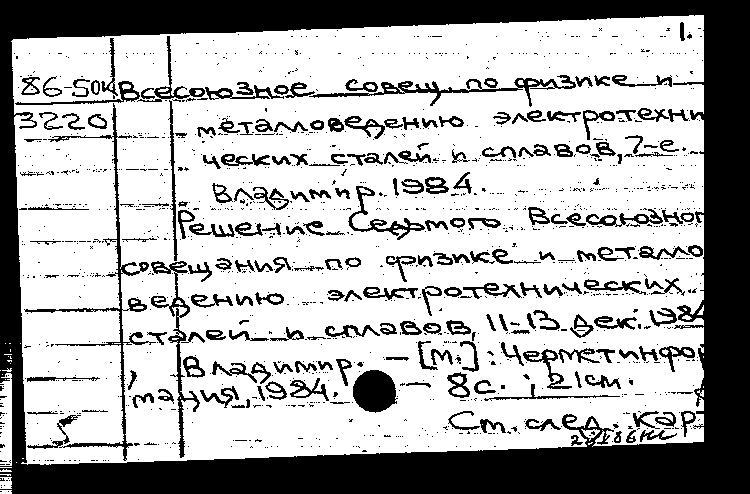 1.
86-50к Всесоюзное совещ. по физике и
3220 металловедению электротехни
ческих сталей и сплавов, 7-е.
Владимир. 1984.
Решение Седьмого Всесоюзног
совещания по физике и металло
ведению электротехнических
сталей и сплавов, 11-13 дек. 1984
, Владимир. — [М.] : Черметинфор
мация, 1984. — 8 с. ; 21 см.
См. след. кар